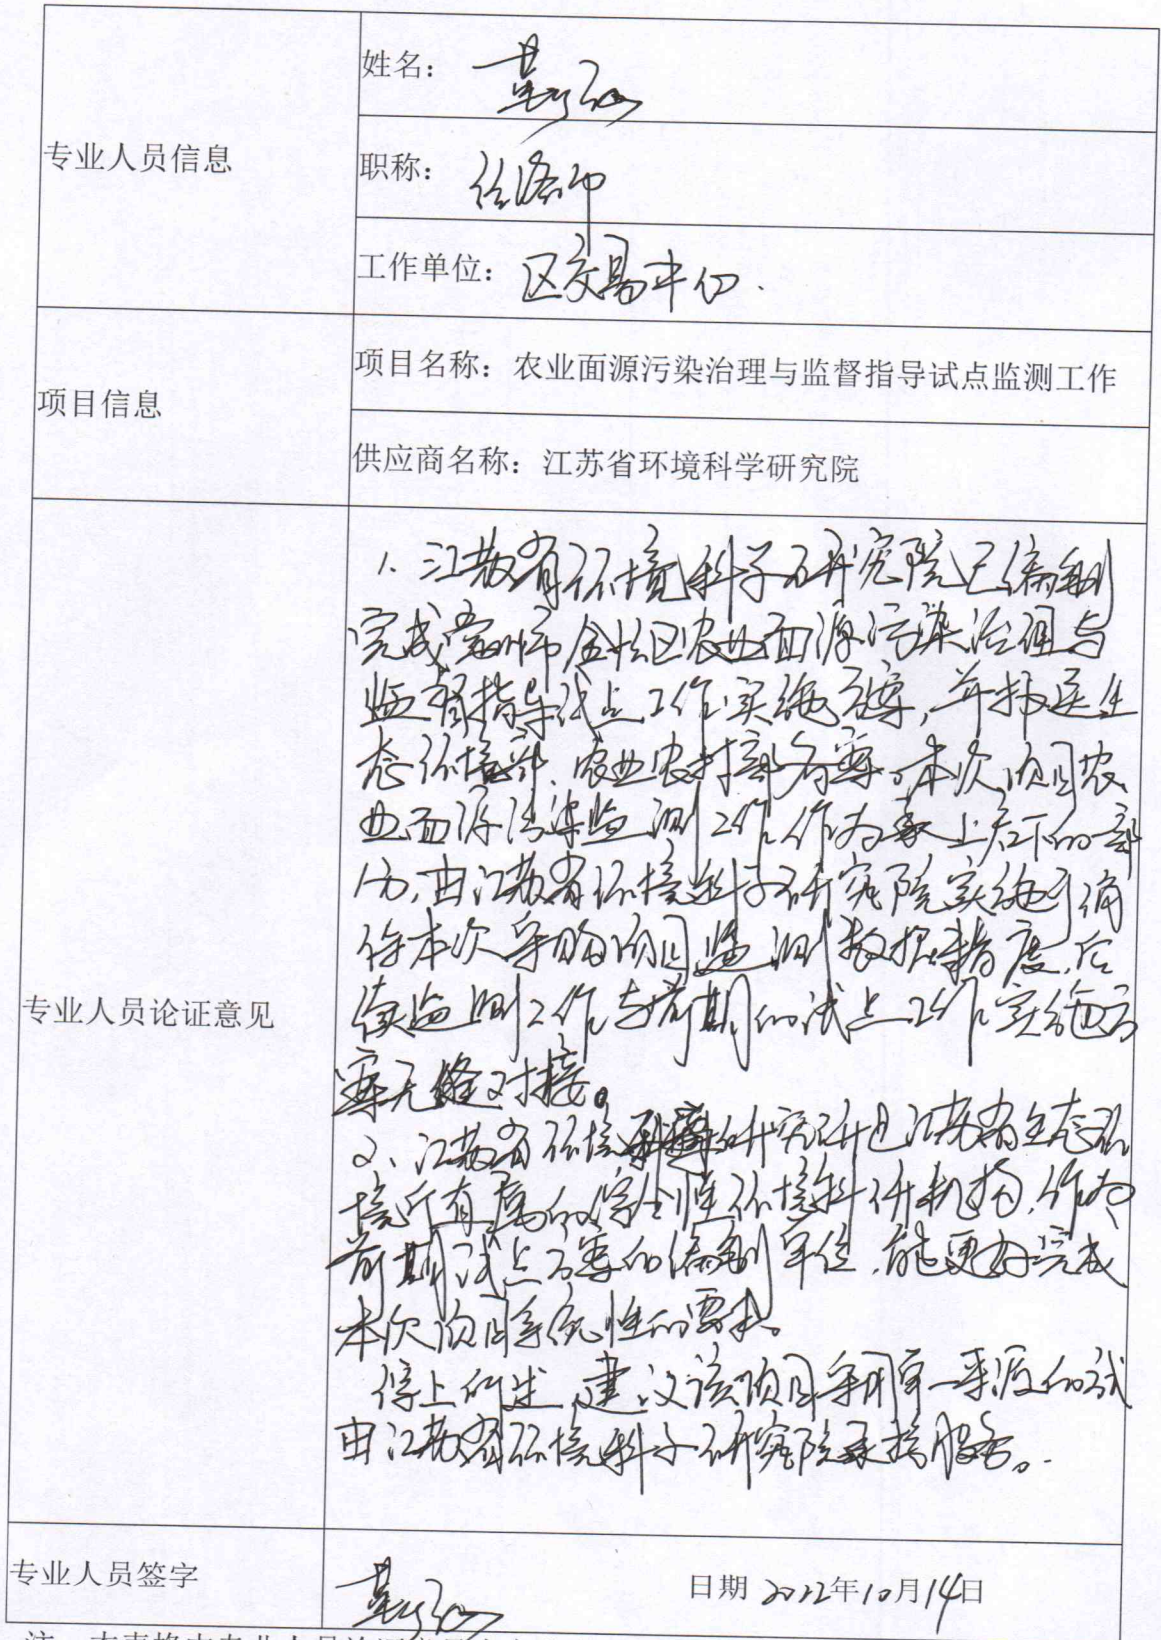 专业人员信息
姓名:
职称: 经济师
工作单位: 区交易中心.
项目信息
项目名称: 农业面源污染治理与监督指导试点监测工作
供应商名称: 江苏省环境科学研究院
专业人员论证意见
1、江苏省环境科学研究院已编制
完成常州市金坛区农业面源污染治理与
监督指导试点工作实施方案,并报送生
态环境部、农业农村部备案。本次项目农
业面源污染监测工作,作为承上启下的部
分,由江苏省环境科学研究院实施可确
保本次采购项目监测数据精度,后
续监测工作与前期的试点工作实施方
案无缝对接。
2、江苏省环境科学研究院是江苏省生态环
境厅直属的综合性环境科研机构,作为
前期试点方案的编制单位,能更好完成
本次项目系统性的要求。
综上所述,建议该项目采用单一来源方式
由江苏省环境科学研究院承接服务。
专业人员签字
日期 2022年10月14日